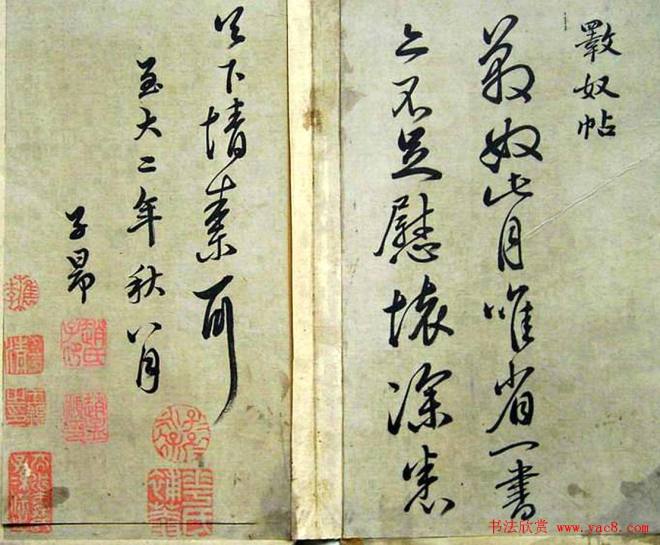 斁奴帖
斁奴此月唯省一書
亦不足慰懷深悉
足下情素耳
至大二年秋八月
子昂
趙氏子昂
书法欣赏 www.yac8.com